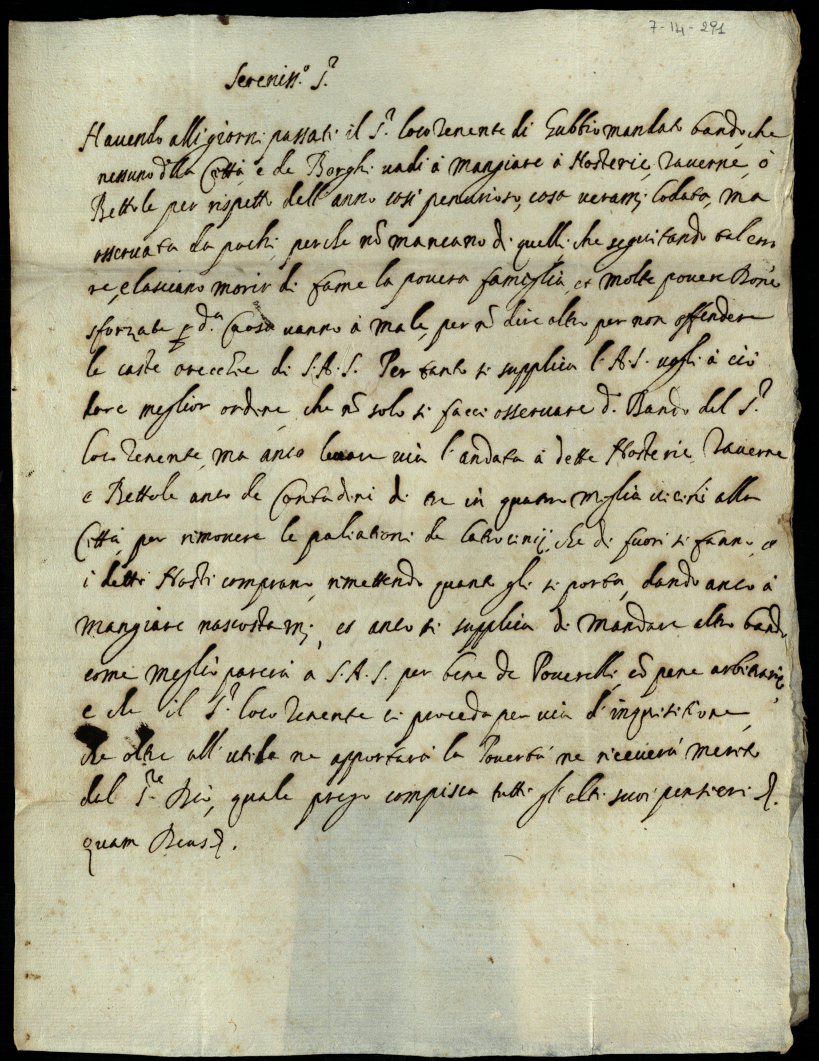 7-14-291
Sereniss.º S.r
Havendo alli giorni passati il S.r locotenente di Gubbio mandato bando, che
nessuno della Città, e de Borghi vadi à mangiare à Hosterie, Taverne, ò
Bettole per rispetto dell'anno così penurioso, cosa veram.e lodata, ma
osservata da pochi, perche nõ mancano di quelli che seguitando tal erro
re, e lasciano morir di fame la povera famiglia, et molte povere Donne
sforzate per d.a Causa vanno à male, per nõ dire altro per non offendere
le caste orecchie di S.A.S. Per tanto si supplica l'A.S. vogli à ciò
dare meglior ordine, che nõ solo si facci osservare d.º Bando del S.r
locotenente, ma anco levare via l'andata à dette Hosterie, Taverne
e Bettole anco de Contadini di tre in quattro miglia vicini alla
Città, per rimovere le paliationi de latrocinij, che di fuori si fanno, e
i detti Hosti comprano, rimettendo quanto gli si porta, dando anco à
mangiare nascostam.e, et anco si supplica di mandare altro bando
come meglio parerà a S.A.S. per bene de Poverelli, cõ pene arbitrarie,
e che il S.r locotenente ci proceda per via d'inquisitione,
che oltre all'utile ne apportarà la Povertà ne riceverà merito
dal S.re Dio, quale prego compisca tutti gl'alti suoi pensieri &.
quam Deus &.